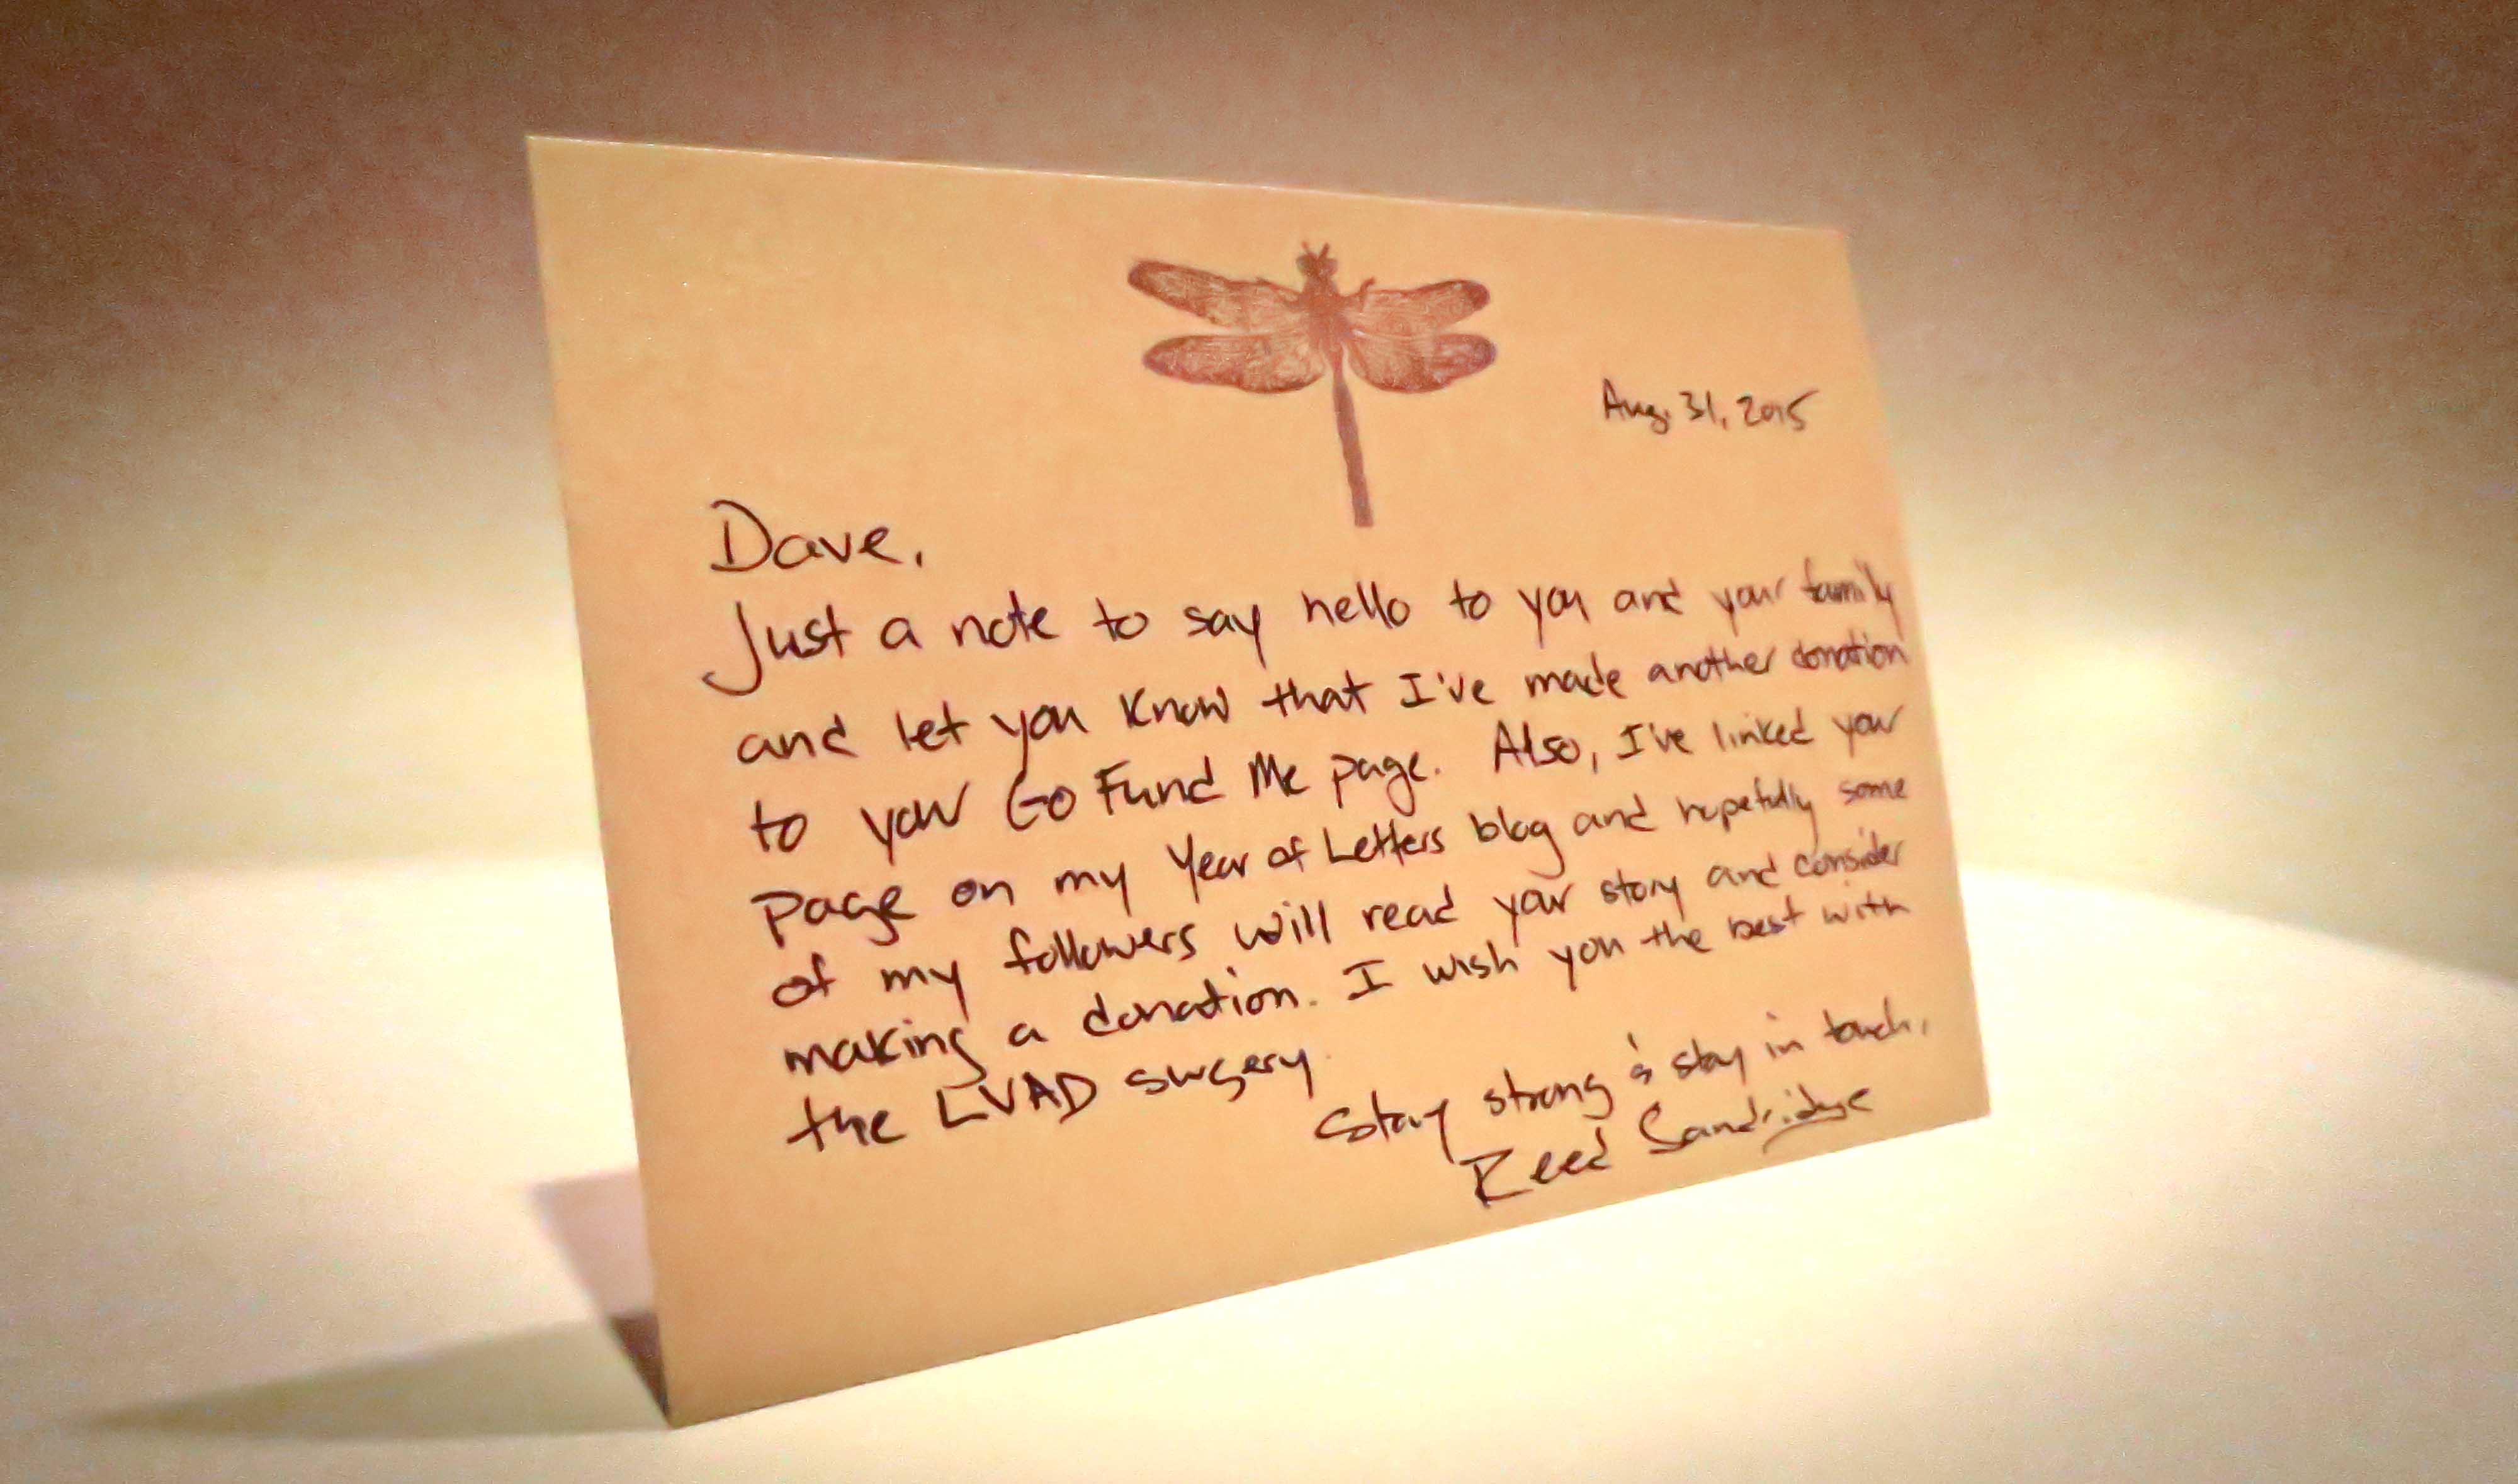 Aug. 31, 2015
Dave,
Just a note to say hello to you and your family
and let you know that I've made another donation
to your Go Fund Me page. Also, I've linked your
page on my Year of Letters blog and hopefully some
of my followers will read your story and consider
making a donation. I wish you the best with
the LVAD surgery.
Stay strong & stay in touch,
Reed Sandridge